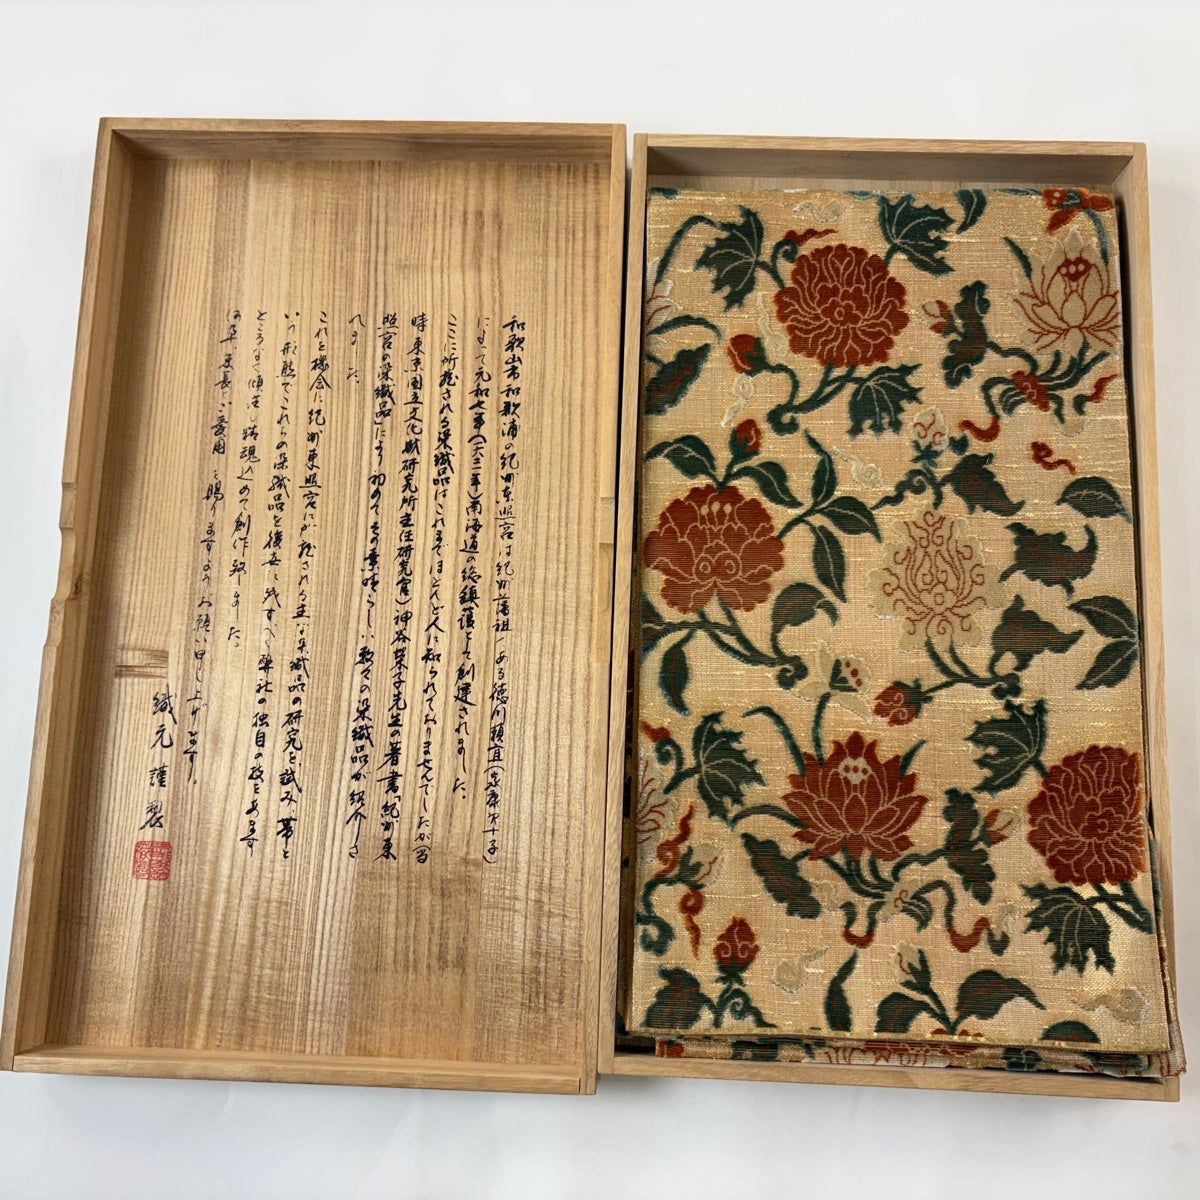 和歌山市和歌浦の紀州東照宮は紀州藩祖である徳川頼宣(家康第十子)
によって元和七年(一六二一年)南海道の総鎮護として創建されました。
ここに所蔵される染織品はこれまでほとんど人に知られておりませんでしたが(当
時 東京国立文化財研究所主任研究官)神谷栄子先生の著書「紀州東
照宮の染織品」により初めてその素晴らしい数々の染織品が紹介さ
れました。
これを機会に紀州東照宮に所蔵される主な染織品の研究を試み帯と
いう形態でこれらの染織品を後世に残すべく弊社の独自の技をあます
ところなく傾注し精魂込めて創作致しました。
何卒、末長くご愛用を賜りますようお願い申し上げます。
織元 謹製